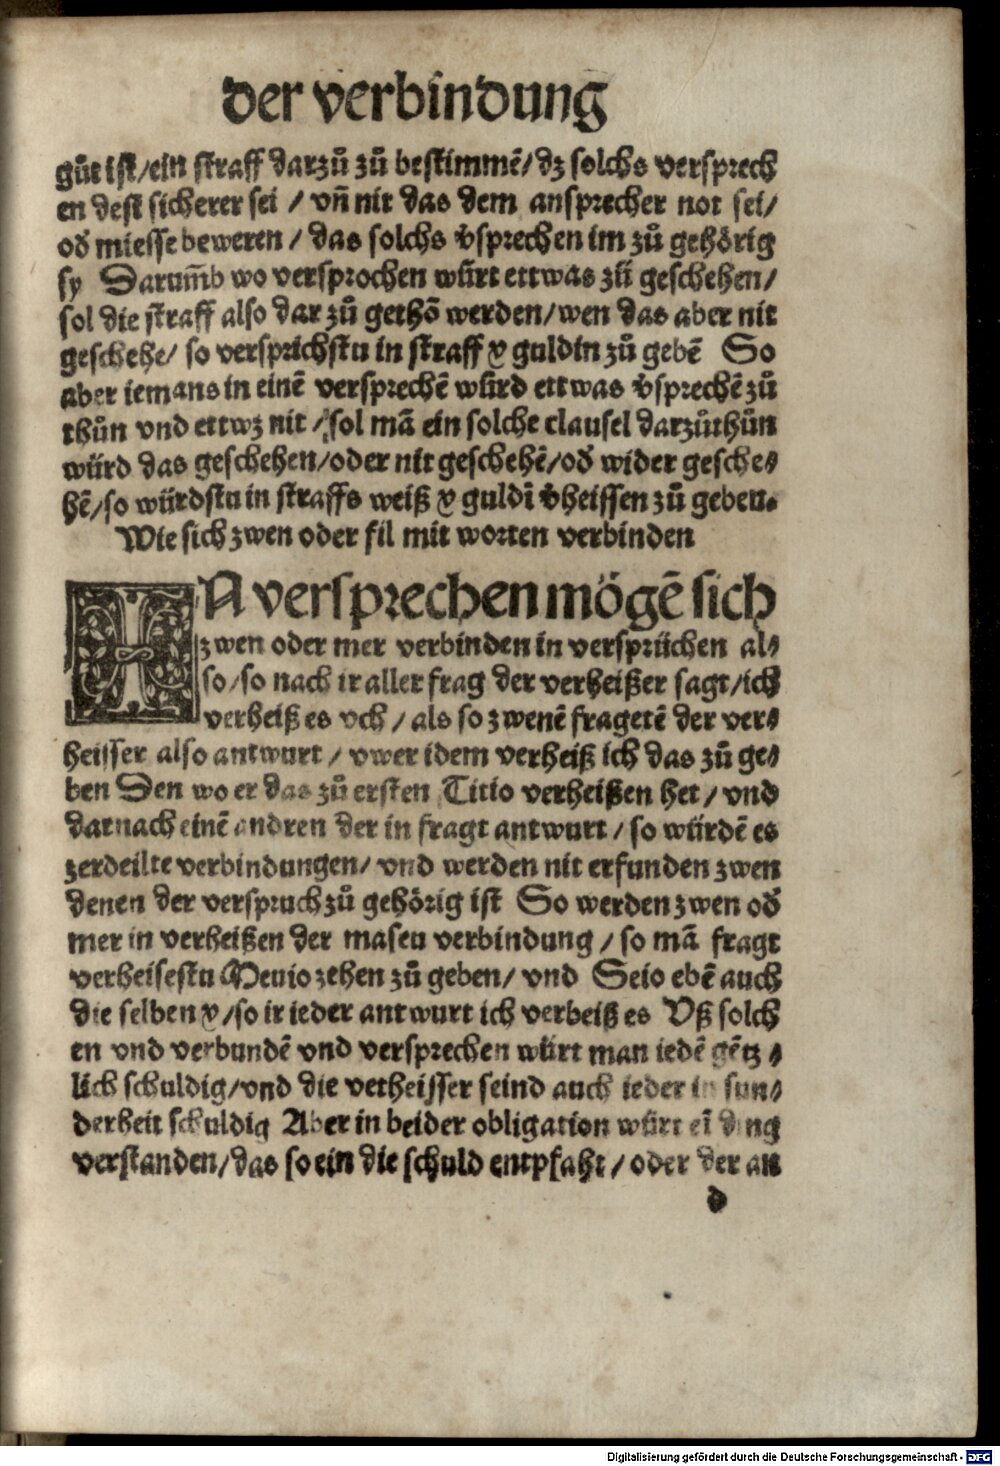 der verbindung
gůt ist/ein straff darzů zů bestimmē/dz solchs versprech
en dest sicherer sei / vñ nit das dem ansprecher not sei/
oď miesse beweren / das solchs v̓sprechen im zů gehörig
sy Darum̄b wo versprochen würt ettwas zů geschehen/
sol die straff also dar zů gethō werden/wen das aber nit
geschehe/ so versprichstu in straff x guldin zů gebē So
aber iemans in einē versprechē würd ettwas v̓sprechē zů
thůn vnd ettwz nit / sol mā ein solche clausel darzůthůn
würd das geschehen/oder nit geschehē/oď wider gesche⸗
hē/so würdstu in straffs weiß x guldī v̓heissen zů geben.
Wie sich zwen oder fil mit worten verbinden
IN versprechen mögē sich
zwen oder mer verbinden in versprüchen al⸗
so/so nach ir aller frag der verheißer sagt/ich
verheiß es vch / als so zwenē fragetē der ver⸗
heisser also antwurt / vwer idem verheiß ich das zů ge⸗
ben Den wo er das zů ersten Titio verheißen het / vnd
darnach einē andren der in fragt antwurt / so würdē es
zerdeilte verbindungen/ vnd werden nit erfunden zwen
denen der verspruch zů gehörig ist So werden zwen oď
mer in verheißen der masen verbindung / so mā fragt
verheisestu Meuio zehen zů geben/ vnd Seio ebē auch
die selben x/so ir ieder antwurt ich verheiß es Vß solch
en vnd verbundē vnd versprechen würt man iedē gētz ⸗
lich schuldig/vnd die vetheisser seind auch ieder in sun⸗
derheit schuldig Aber in beider obligation würt eī ding
verstanden/das so ein die schuld entpfaht / oder der an
d
Digitalisierung gefördert durch die Deutsche Forschungsgemeinschaft - DFG